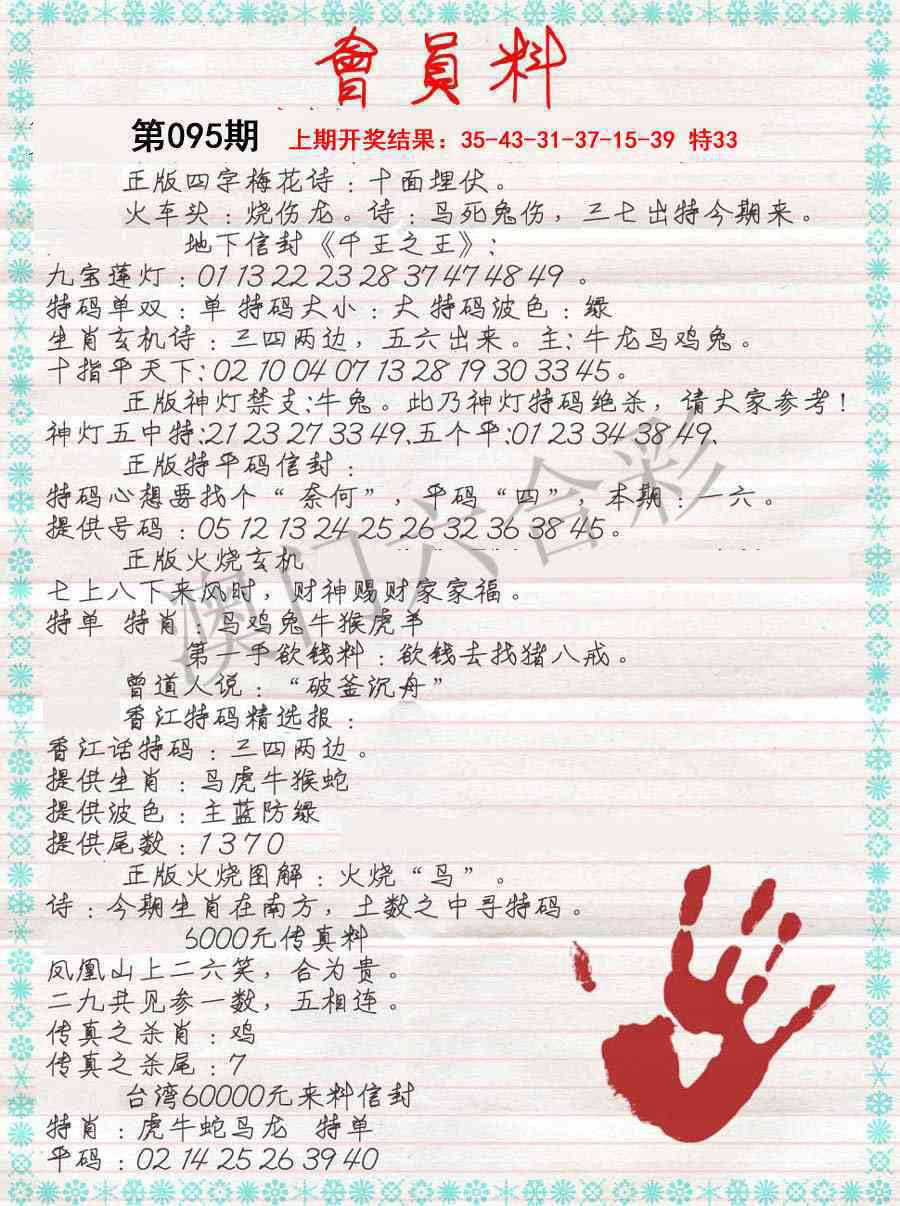 會員料
第095期 上期开奖结果：35-43-31-37-15-39 特33
正版四字梅花诗：十面埋伏。
火车头：烧伤龙。诗：鸟死兔伤，三七出特今期来。
地下信封《千王之王》：
九宝莲灯：01 13 22 23 28 37 47 48 49 。
特码单双：单 特码大小：大 特码波色：绿
生肖玄机诗：三四两边，五六出来。主：牛龙鸟鸡兔。
十指平天下：02 10 04 07 13 28 19 30 33 45。
正版神灯禁支：牛兔。此乃神灯特码绝杀，请大家参考！
神灯五中特：21 23 27 33 49、五个平：01 23 34 38 49、
正版特平码信封：
特码心想要找个“奈何”，平码“四”，本期：一六。
提供号码：05 12 13 24 25 26 32 36 38 45。
正版火烧玄机
七上八下来风时，财神赐财家家福。
特单 特肖：鸟鸡兔牛猴虎羊
第一手欲钱料：欲钱去找猪八戒。
曾道人说：“破釜沉舟”
香江特码精选报：
香江话特码：三四两边。
提供生肖：鸟虎牛猴蛇
提供波色：主蓝防绿
提供尾数：1 3 7 0
正版火烧图解：火烧“鸟”。
诗：今期生肖在南方，土数之中寻特码。
6000元传真料
凤凰山上二六笑，合为贵。
二九共见参一数，五相连。
传真之杀肖：鸡
传真之杀尾：7
台湾60000元来料信封
特肖：虎牛蛇鸟龙 特单
平码：02 14 25 26 39 40
澳门六合彩